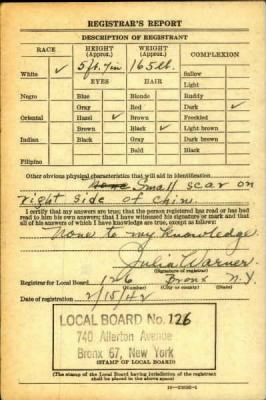 REGISTRAR'S REPORT
DESCRIPTION OF REGISTRANT
RACE HEIGHT (Approx.) WEIGHT (Approx.) COMPLEXION
White ✓ 5 ft. 7 in 165 lb. Sallow
EYES HAIR Light
Negro Blue Blonde Ruddy
Gray Red Dark ✓
Oriental Hazel ✓ Brown Freckled
Brown Black ✓ Light brown
Indian Black Gray Dark brown
Bald Black
Filipino
Other obvious physical characteristics that will aid in identification
None Small scar on
right side of chin.
I certify that my answers are true; that the person registered has read or has had
read to him his own answers; that I have witnessed his signature or mark and that
all of his answers of which I have knowledge are true, except as follows:
None to my knowledge
Julia Warner
(Signature of registrar)
Registrar for Local Board 126 Bronx N.Y.
(Number) (City or county) (State)
Date of registration 2/15/42
LOCAL BOARD No. 126
740 Allerton Avenue
Bronx 67, New York
(STAMP OF LOCAL BOARD)
(The stamp of the Local Board having jurisdiction of the registrant
shall be placed in the above space)